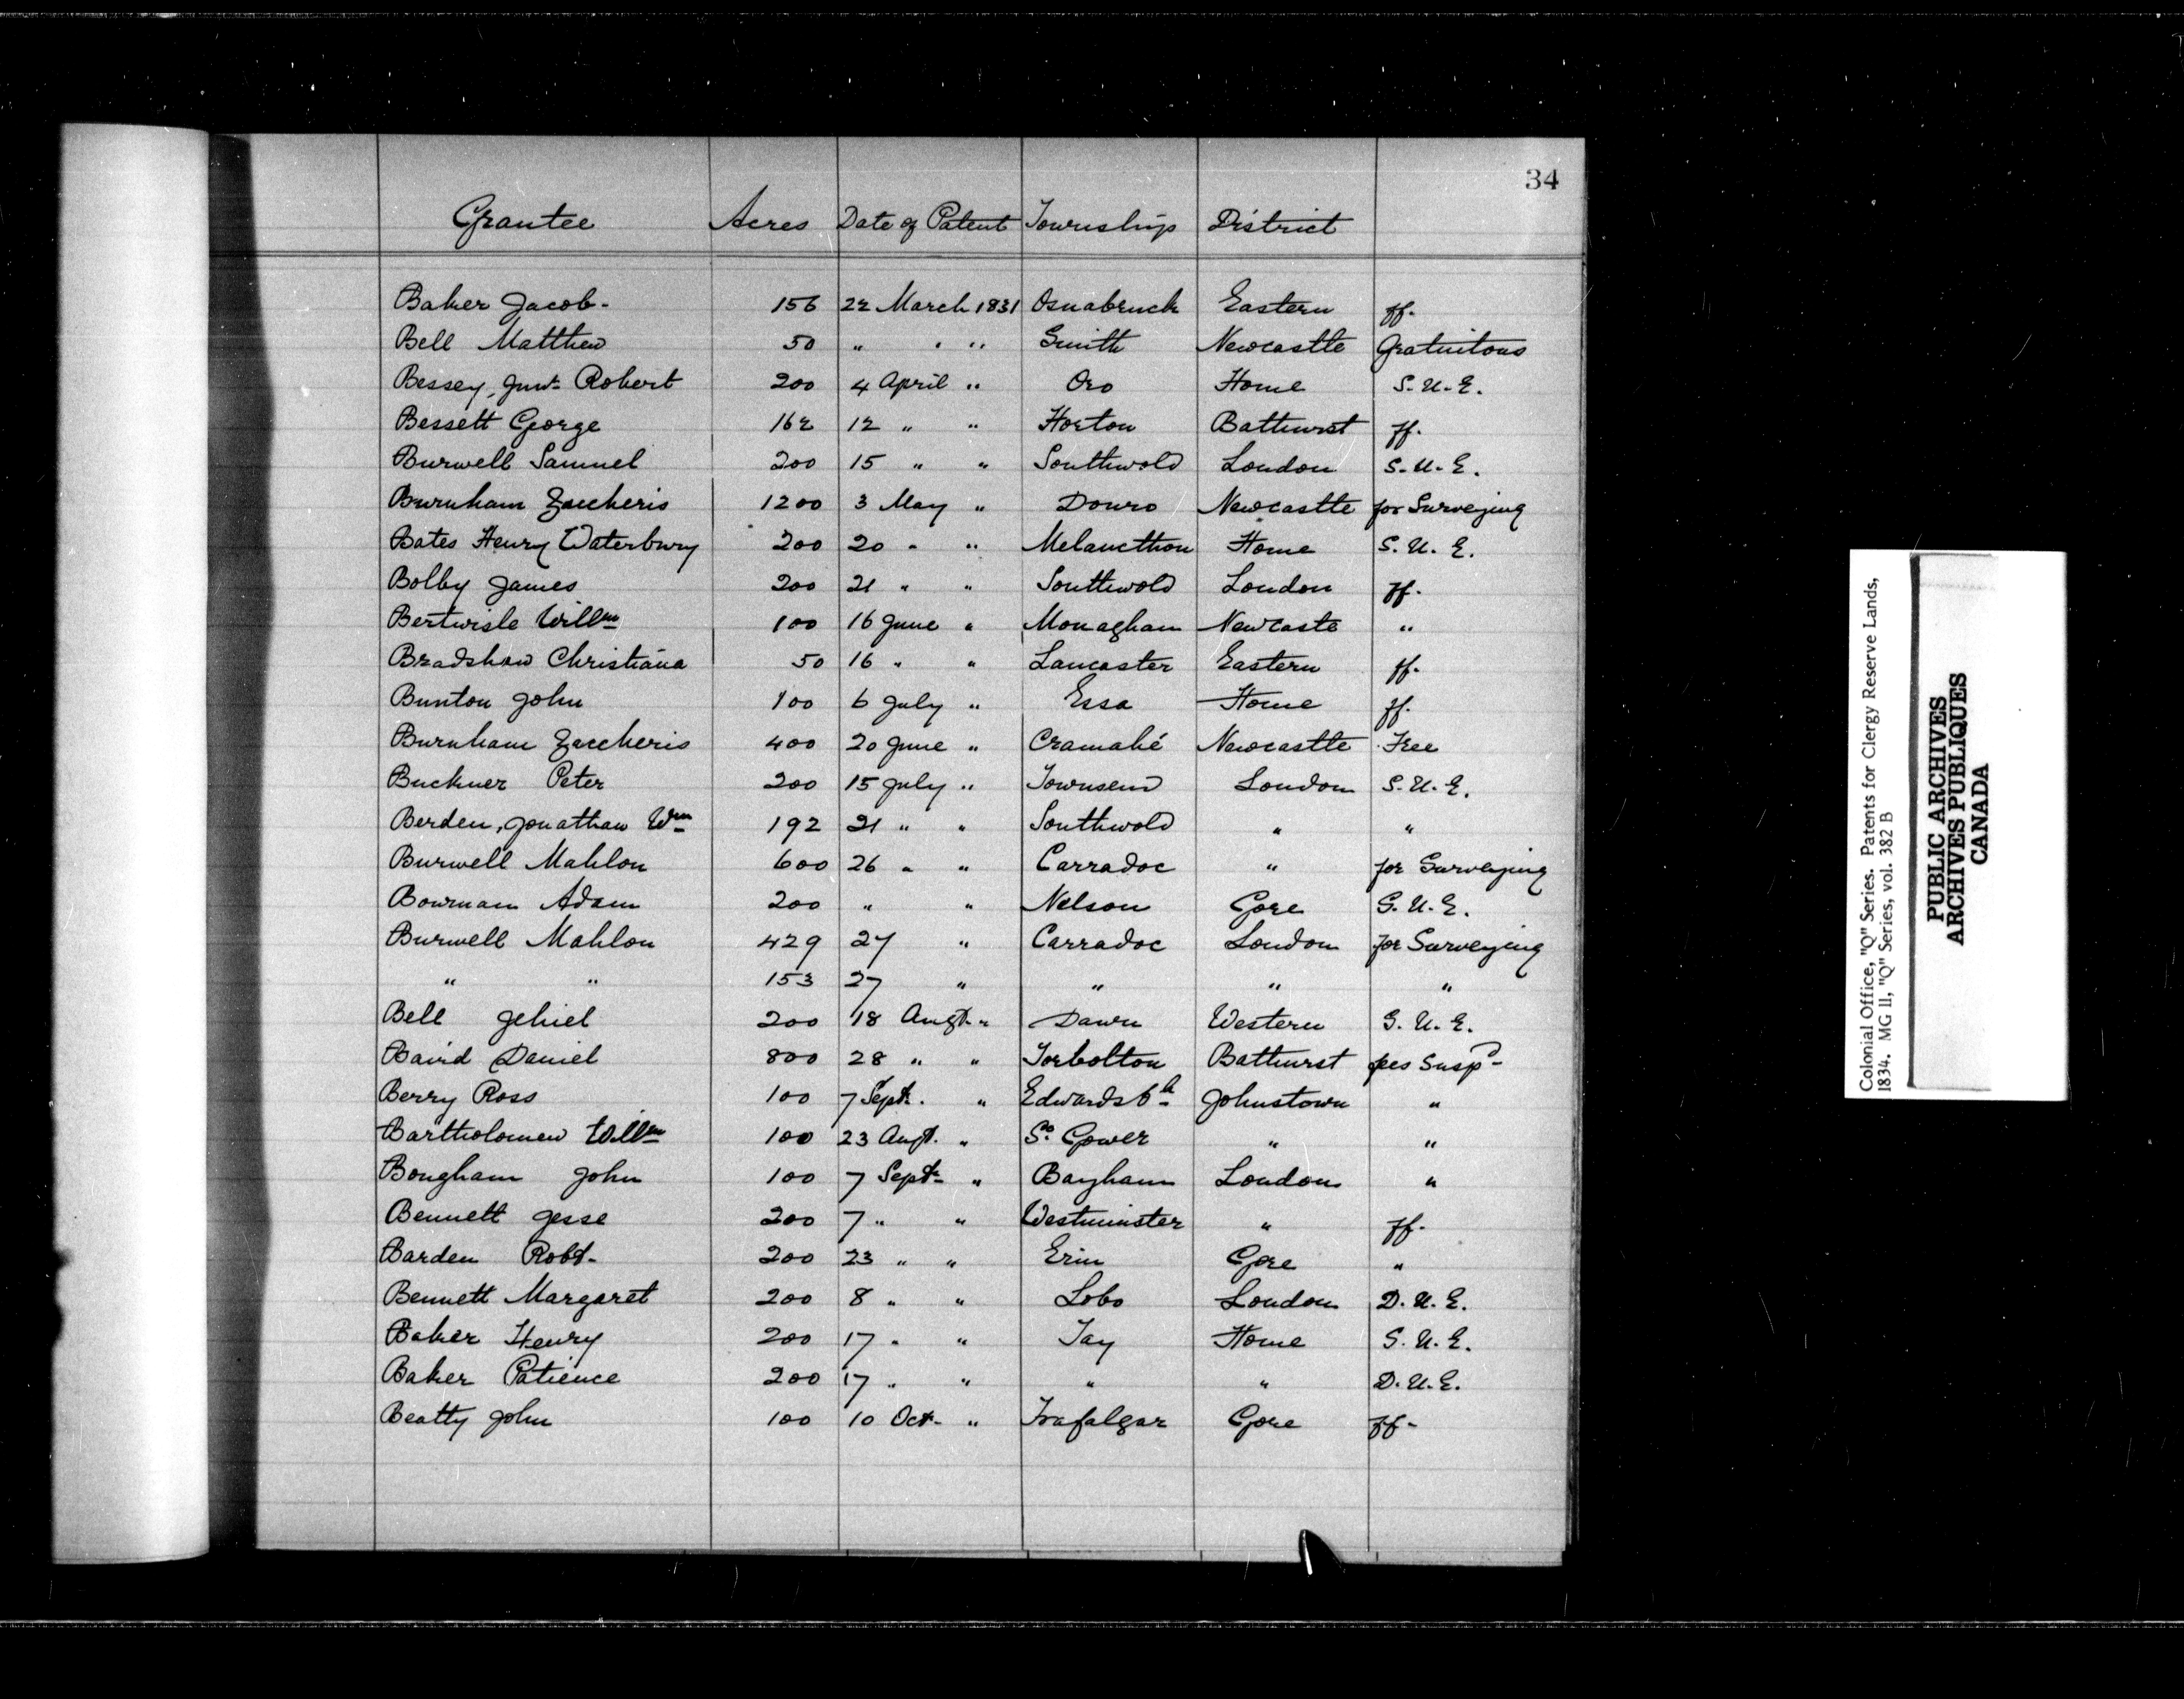 34
Grantee Acres Date of Patent Township District
Baker Jacob - 156 22 March 1831 Osnabruck Eastern ff.
Bell Matthew 50 " " " Smith Newcastle Gratuitous
Bessey, Junr. Robert 200 4 April " Oro Home S.U.E.
Bessett George 162 12 " " Horton Bathurst ff.
Burwell Samuel 200 15 " " Southwold London S.U.E.
Burnham Zaccheris 1200 3 May " Douro Newcastle for Surveying
Bates Henry Waterbury 200 20 " " Melancthon Home S.U.E.
Bolby James 200 21 " " Southwold London ff.
Bertwisle Willm 100 16 June " Monaghan Newcaste "
Bradshaw Christiana 50 16 " " Lancaster Eastern ff.
Bunton John 100 6 July " Essa Home ff.
Burnham Zaccheris 400 20 June " Cramahé Newcastle Free
Buckner Peter 200 15 July " Townsend London S.U.E.
Berden, Jonathan Wm 192 21 " " Southwold " "
Burwell Mahlon 600 26 " " Carradoc " for Surveying
Bowman Adam 200 " " Nelson Gore S.U.E.
Burwell Mahlon 429 27 " Carradoc London for Surveying
" " 153 27 " " " "
Bell Jehiel 200 18 Augt. " Dawn Western S.U.E.
Baird Daniel 800 28 " " Torbolton Bathurst fees Suspd
Berry Ross 100 7 Sept. " Edwardsbh Johnstown "
Bartholomew Willm 100 23 Augt. " So. Gower " "
Bongham John 100 7 Sept. " Bayham London "
Bennett Jesse 200 7 " " Westminster " ff.
Barden Robt. 200 23 " " Erin Gore "
Bennett Margaret 200 8 " " Lobo London D.U.E.
Baker Henry 200 17 " " Tay Home S.U.E.
Baker Patience 200 17 " " " " D.U.E.
Beatty John 100 10 Oct. " Trafalgar Gore ff.
Colonial Office, "Q" Series. Patents for Clergy Reserve Lands,
1834. MG 11, "Q" Series, vol. 382 B
PUBLIC ARCHIVES
ARCHIVES PUBLIQUES
CANADA